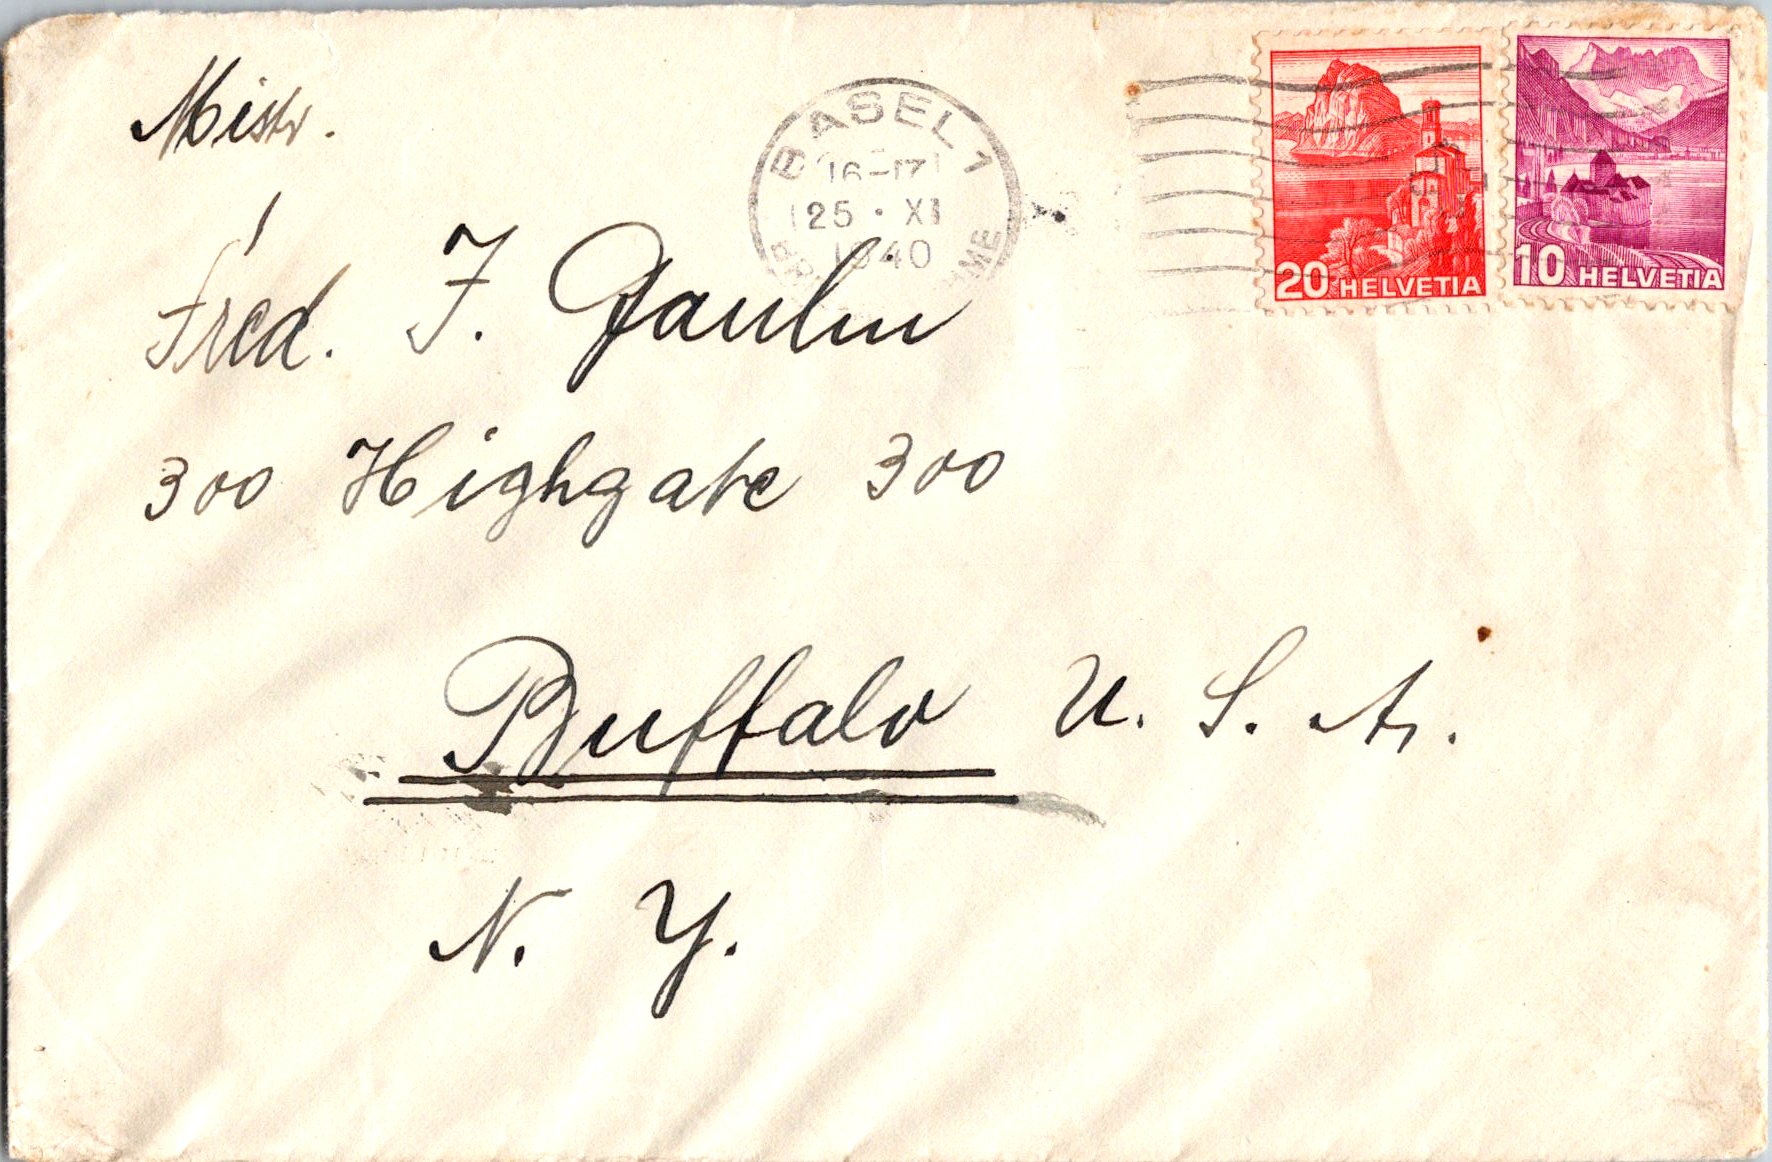 Mistr.
BASEL 1
16-17
25 · XI
1940
20 HELVETIA
10 HELVETIA
Fred. F. Paulin
300 Highgate 300
Buffalo U. S. A.
N. Y.